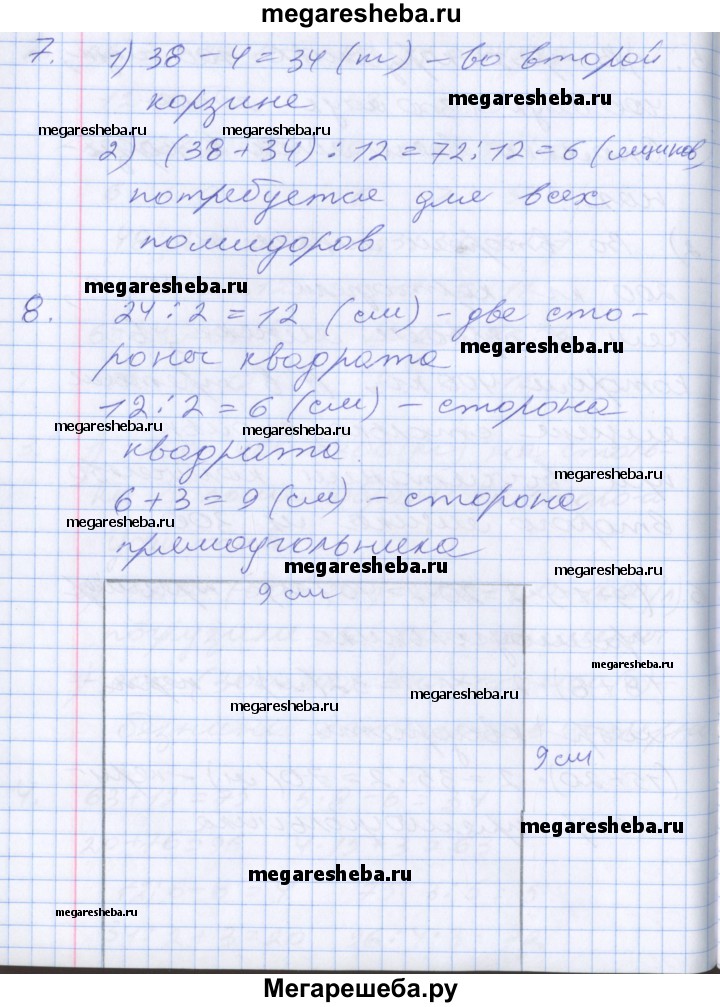 megaresheba.ru
7. 1) 38 - 4 = 34 (т) - во второй
корзине
megaresheba.ru
megaresheba.ru megaresheba.ru
2) (38 + 34) : 12 = 72 : 12 = 6 (ящиков)
потребуется для всех
помидоров
megaresheba.ru
8. 24 : 2 = 12 (см) - две сто-
роны квадрата
megaresheba.ru
12 : 2 = 6 (см) - сторона
megaresheba.ru megaresheba.ru
квадрата
megaresheba.ru
6 + 3 = 9 (см) - сторона
megaresheba.ru
прямоугольника
megaresheba.ru megaresheba.ru
9 см
megaresheba.ru
megaresheba.ru megaresheba.ru
9 см
megaresheba.ru
megaresheba.ru
megaresheba.ru
Мегарешеба.ру